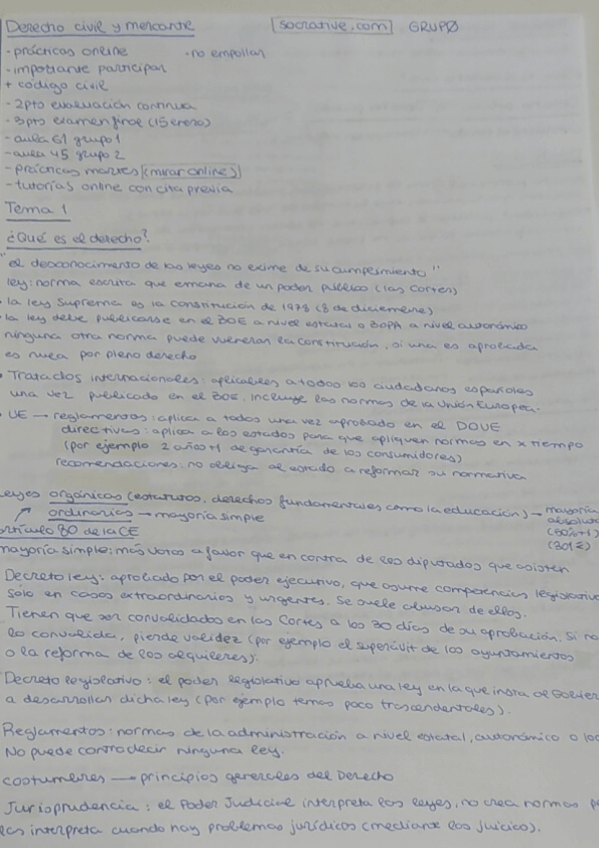 Derecho civil y mercantil [socrative.com] GRUPØ
- prácticas online - no empollar
- importante participar
+ código civil
- 2pto evaluación continua
- 3pto examen final (15 enero)
- aula 61 grupo 1
- aula 45 grupo 2
- prácticas martes (mirar online)
- tutorías online con cita previa
Tema 1
¿Qué es el derecho?
"el desconocimiento de las leyes no exime de su cumplimiento"
ley: norma escrita que emana de un poder público (las Cortes)
• la ley Suprema es la constitución de 1978 (8 de diciembre)
• la ley debe publicarse en el BOE a nivel estatal o BOPA a nivel autonómico
ninguna otra norma puede vulnerar la constitución, si una es aprobada
es nula por pleno derecho
• Tratados internacionales: aplicables a todos los ciudadanos españoles
una vez publicado en el BOE. Incluye las normas de la Unión Europea.
• UE → reglamentos: aplica a todos una vez aprobado en el DOUE
directivas: aplica a los estados para que apliquen normas en x tiempo
(por ejemplo 2 años+1 de garantía de los consumidores)
recomendaciones: no obliga al estado a reformar su normativa
leyes orgánicas (estatutos, derechos fundamentales como la educación) → mayoría
absoluta
ordinarias → mayoría simple (50%+1)
artículo 80 de la CE
mayoría simple: más votos a favor que en contra de los diputados que asisten
Decreto ley: aprobado por el poder ejecutivo, que asume competencias legislativa
sólo en casos extraordinarios y urgentes. Se suele abusar de ellos.
Tienen que ser convalidados en las Cortes a los 30 días de su aprobación. Si no
lo convalida, pierde validez (por ejemplo el superávit de los ayuntamientos
o la reforma de los alquileres).
Decreto legislativo: el poder legislativo aprueba una ley en la que insta al Gobier
a desarrollar dicha ley (por ejemplo temas poco trascendentales).
Reglamentos: normas de la administración a nivel estatal, autonómico o loc
No puede contradecir ninguna ley.
costumbres → principios generales del Derecho
Jurisprudencia: el Poder Judicial interpreta las leyes, no crea normas p
las interpreta cuando hay problemas jurídicos (mediante los juicios).